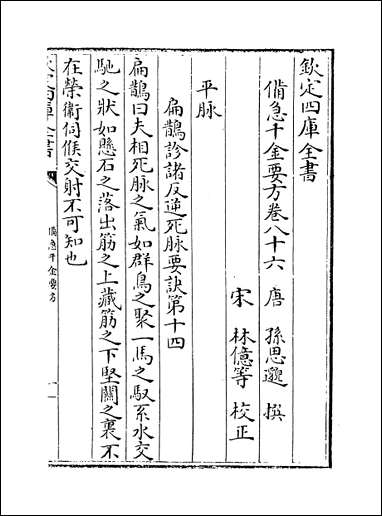 欽定四庫全書
備急千金要方卷八十六　唐　孫思邈　撰
宋　林億等　校正
平脉
扁鵲診諸反逆死脉要訣第十四
扁鵲曰夫相死脉之氣如群鳥之聚一馬之馭系水交
馳之狀如懸石之落出筋之上藏筋之下堅關之裏不
在榮衛伺候交射不可知也
備急千金要方